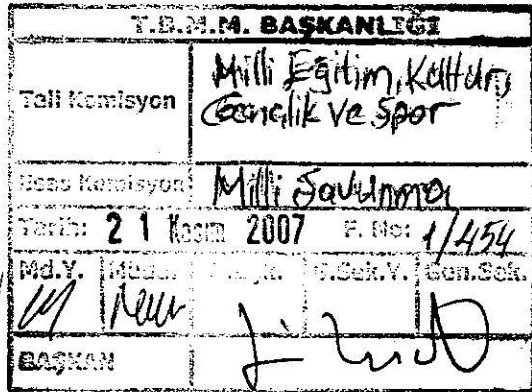 T.B.M.M. BAŞKANLIĞI
Tali Komisyon Milli Eğitim, Kültür,
Gençlik ve Spor
Esas Komisyon Milli Savunma
Tarih: 21 Kasım 2007 E. No: 1/454
Md.Y. Müdür G.Sek.Y. Gen.Sek.
BAŞKAN